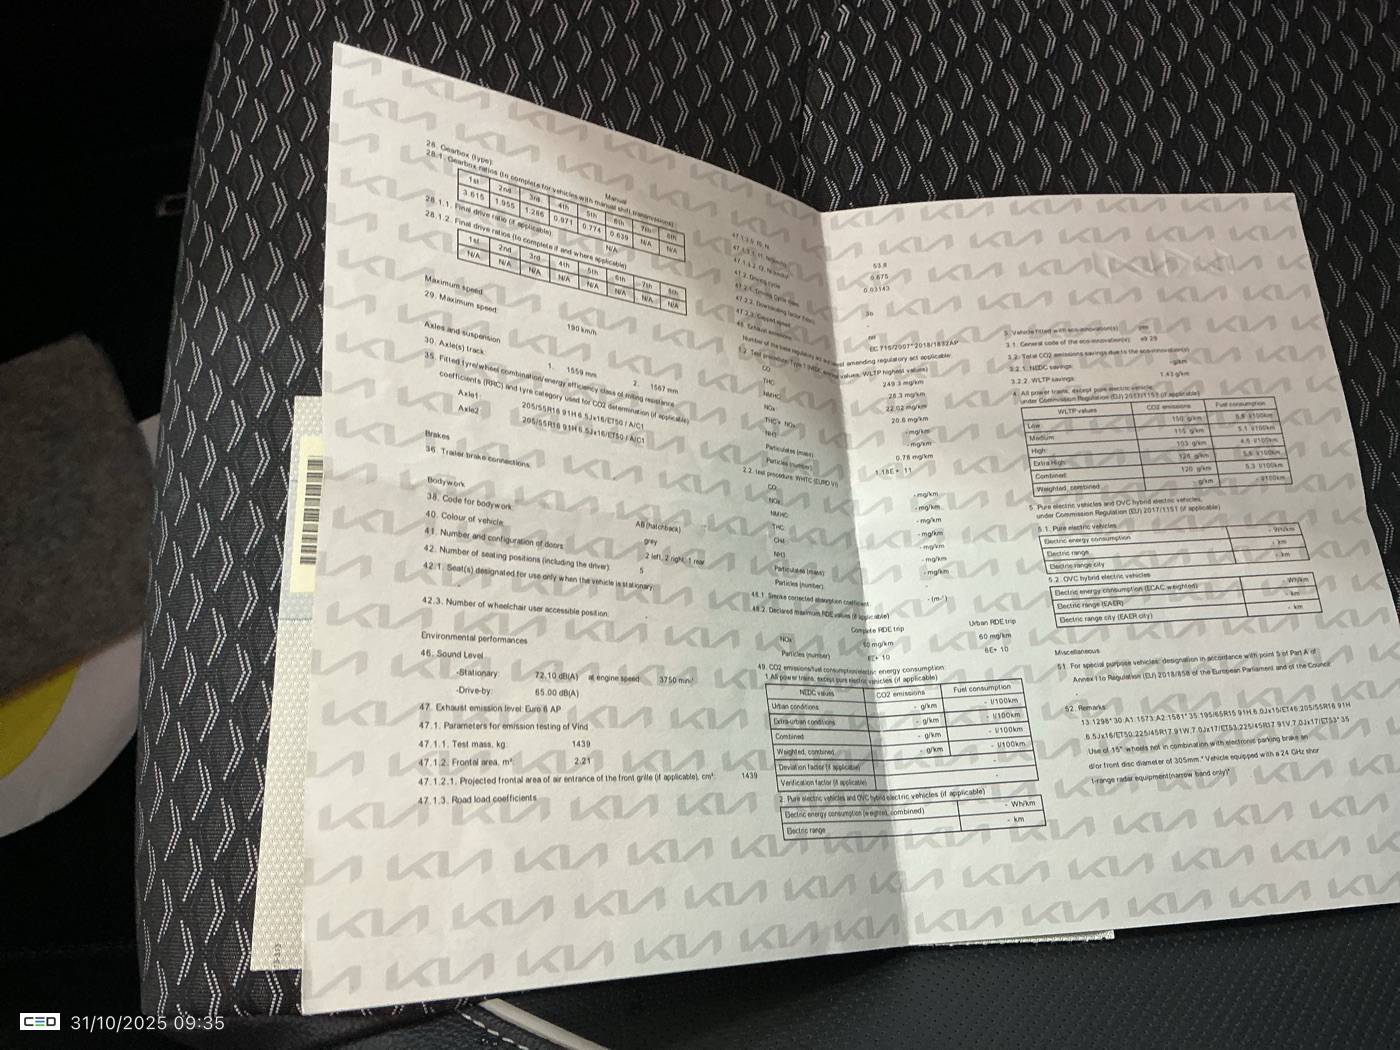 28. Gearbox (type): Manual
28.1. Gearbox ratios (to complete for vehicles with manual shift transmissions)
1st 2nd 3rd 4th 5th 6th 7th 8th
3.615 1.955 1.286 0.971 0.774 0.639 N/A N/A
28.1.1. Final drive ratio (if applicable): N/A
28.1.2. Final drive ratios (to complete if and where applicable)
1st 2nd 3rd 4th 5th 6th 7th 8th
N/A N/A N/A N/A N/A N/A N/A N/A
Maximum speed
29. Maximum speed: 190 km/h
Axles and suspension
30. Axle(s) track: 1. 1559 mm 2. 1567 mm
35. Fitted tyre/wheel combination/energy efficiency class of rolling resistance
coefficients (RRC) and tyre category used for CO2 determination (if applicable)
Axle1: 205/55R16 91H 6.5Jx16/ET50 / A/C1
Axle2: 205/55R16 91H 6.5Jx16/ET50 / A/C1
Brakes
36. Trailer brake connections:
Bodywork
38. Code for bodywork: AB (hatchback)
40. Colour of vehicle: grey
41. Number and configuration of doors: 2 left, 2 right, 1 rear
42. Number of seating positions (including the driver): 5
42.1. Seat(s) designated for use only when the vehicle is stationary:
42.3. Number of wheelchair user accessible position:
Environmental performances
46. Sound Level
-Stationary: 72.10 dB(A) at engine speed: 3750 min⁻¹
-Drive-by: 65.00 dB(A)
47. Exhaust emission level: Euro 6 AP
47.1. Parameters for emission testing of Vind
47.1.1. Test mass, kg: 1439
47.1.2. Frontal area, m²: 2.21
47.1.2.1. Projected frontal area of air entrance of the front grille (if applicable), cm²: 1439
47.1.3. Road load coefficients
47.1.3.0. f0, N: 53.6
47.1.3.1. 0.675
47.1.3.2. 0.03143
47.2. Driving cycle
47.2.1. Driving Cycle class: 3b
47.2.2. Downscaling factor (fdsc): -
47.2.3. Capped speed: no
48. Exhaust emissions
EC 715/2007*2018/1832AP
CO: 249.3 mg/km
THC: 26.3 mg/km
NMHC: 22.02 mg/km
NOx: 20.6 mg/km
THC + NOx: - mg/km
NH3: - mg/km
Particulates (mass): 0.78 mg/km
Particles (number): 1.18E+ 11
2.2. test procedure: WHTC (EURO VI)
CO: - mg/km
NOx: - mg/km
NMHC: - mg/km
THC: - mg/km
CH4: - mg/km
NH3: - mg/km
Particulates (mass): - mg/km
Particles (number):
48.1. Smoke corrected absorption coefficient: - (m-¹)
48.2. Declared maximum RDE values (if applicable)
Complete RDE trip Urban RDE trip
NOx: 60 mg/km 60 mg/km
Particles (number): 6E+ 10 6E+ 10
49. CO2 emissions/fuel consumption/electric energy consumption:
1.All power trains, except pure electric vehicles (if applicable)
NEDC values CO2 emissions Fuel consumption
Urban conditions - g/km - l/100km
Extra-urban conditions - g/km - l/100km
Combined - g/km - l/100km
Weighted, combined - g/km - l/100km
Deviation factor (if applicable)
Verification factor (if applicable) -
2. Pure electric vehicles and OVC hybrid electric vehicles (if applicable)
Electric energy consumption (weighted, combined) - Wh/km
Electric range - km
3. Vehicle fitted with eco-innovation(s): yes
3.1. General code of the eco-innovation(s): e9 29
3.2. Total CO2 emissions savings due to the eco-innovation(s)
3.2.1. NEDC savings: - g/km
3.2.2. WLTP savings: 1.43 g/km
4. All power trains, except pure electric vehicle,
under Commission Regulation (EU) 2017/1151 (if applicable)
WLTP values CO2 emissions Fuel consumption
Low: 150 g/km 6.6 l/100km
Medium: 115 g/km 5.1 l/100km
High: 103 g/km 4.5 l/100km
Extra High: 126 g/km 5.6 l/100km
Combined: 120 g/km 5.3 l/100km
Weighted, combined: - g/km - l/100km
5. Pure electric vehicles and OVC hybrid electric vehicles,
under Commission Regulation (EU) 2017/1151 (if applicable)
5.1. Pure electric vehicles
Electric energy consumption - Wh/km
Electric range - km
Electric range city - km
5.2. OVC hybrid electric vehicles
Electric energy consumption (ECAC weighted) - Wh/km
Electric range (EAER) - km
Electric range city (EAER city) - km
Miscellaneous
51. For special purpose vehicles: designation in accordance with point 5 of Part A of
Annex I to Regulation (EU) 2018/858 of the European Parliament and of the Council:
52. Remarks:
13:1298* 30:A1:1573,A2:1581* 35:195/65R15 91H,6.0Jx15/ET46;205/55R16 91H
,6.5Jx16/ET50;225/45R17 91W,7.0Jx17/ET53;225/45R17 91V,7.0Jx17/ET53* 35
Use of 15" wheels not in combination with electronic parking brake an
d/or front disc diameter of 305mm.* Vehicle equipped with a 24 GHz shor
t-range radar equipment(narrow band only)*
CED 31/10/2025 09:35